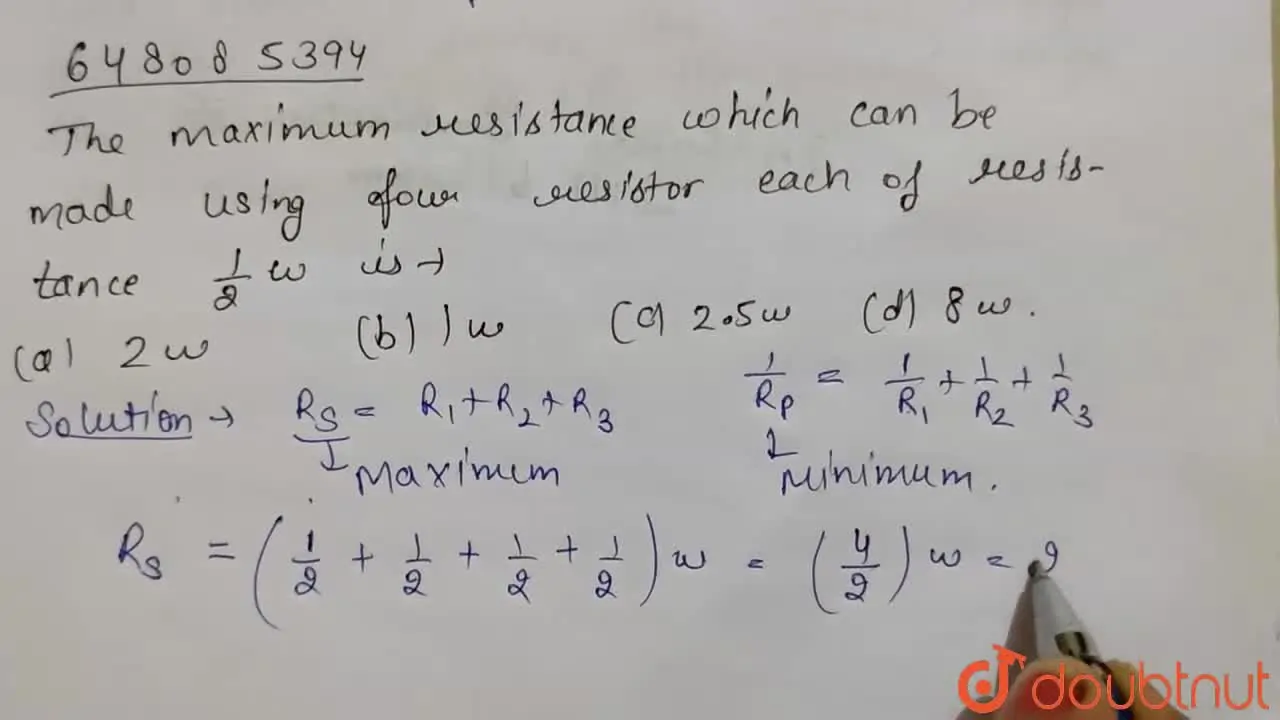 648085394
The maximum resistance which can be
made using four resistor each of resis-
tance 1/2 w is →
(a) 2 w (b) 1 w (c) 2.5 w (d) 8 w.
Solution → Rs = R1 + R2 + R3 1/Rp = 1/R1 + 1/R2 + 1/R3
Maximum Minimum.
Rs = (1/2 + 1/2 + 1/2 + 1/2) w = (4/2) w = 2
doubtnut